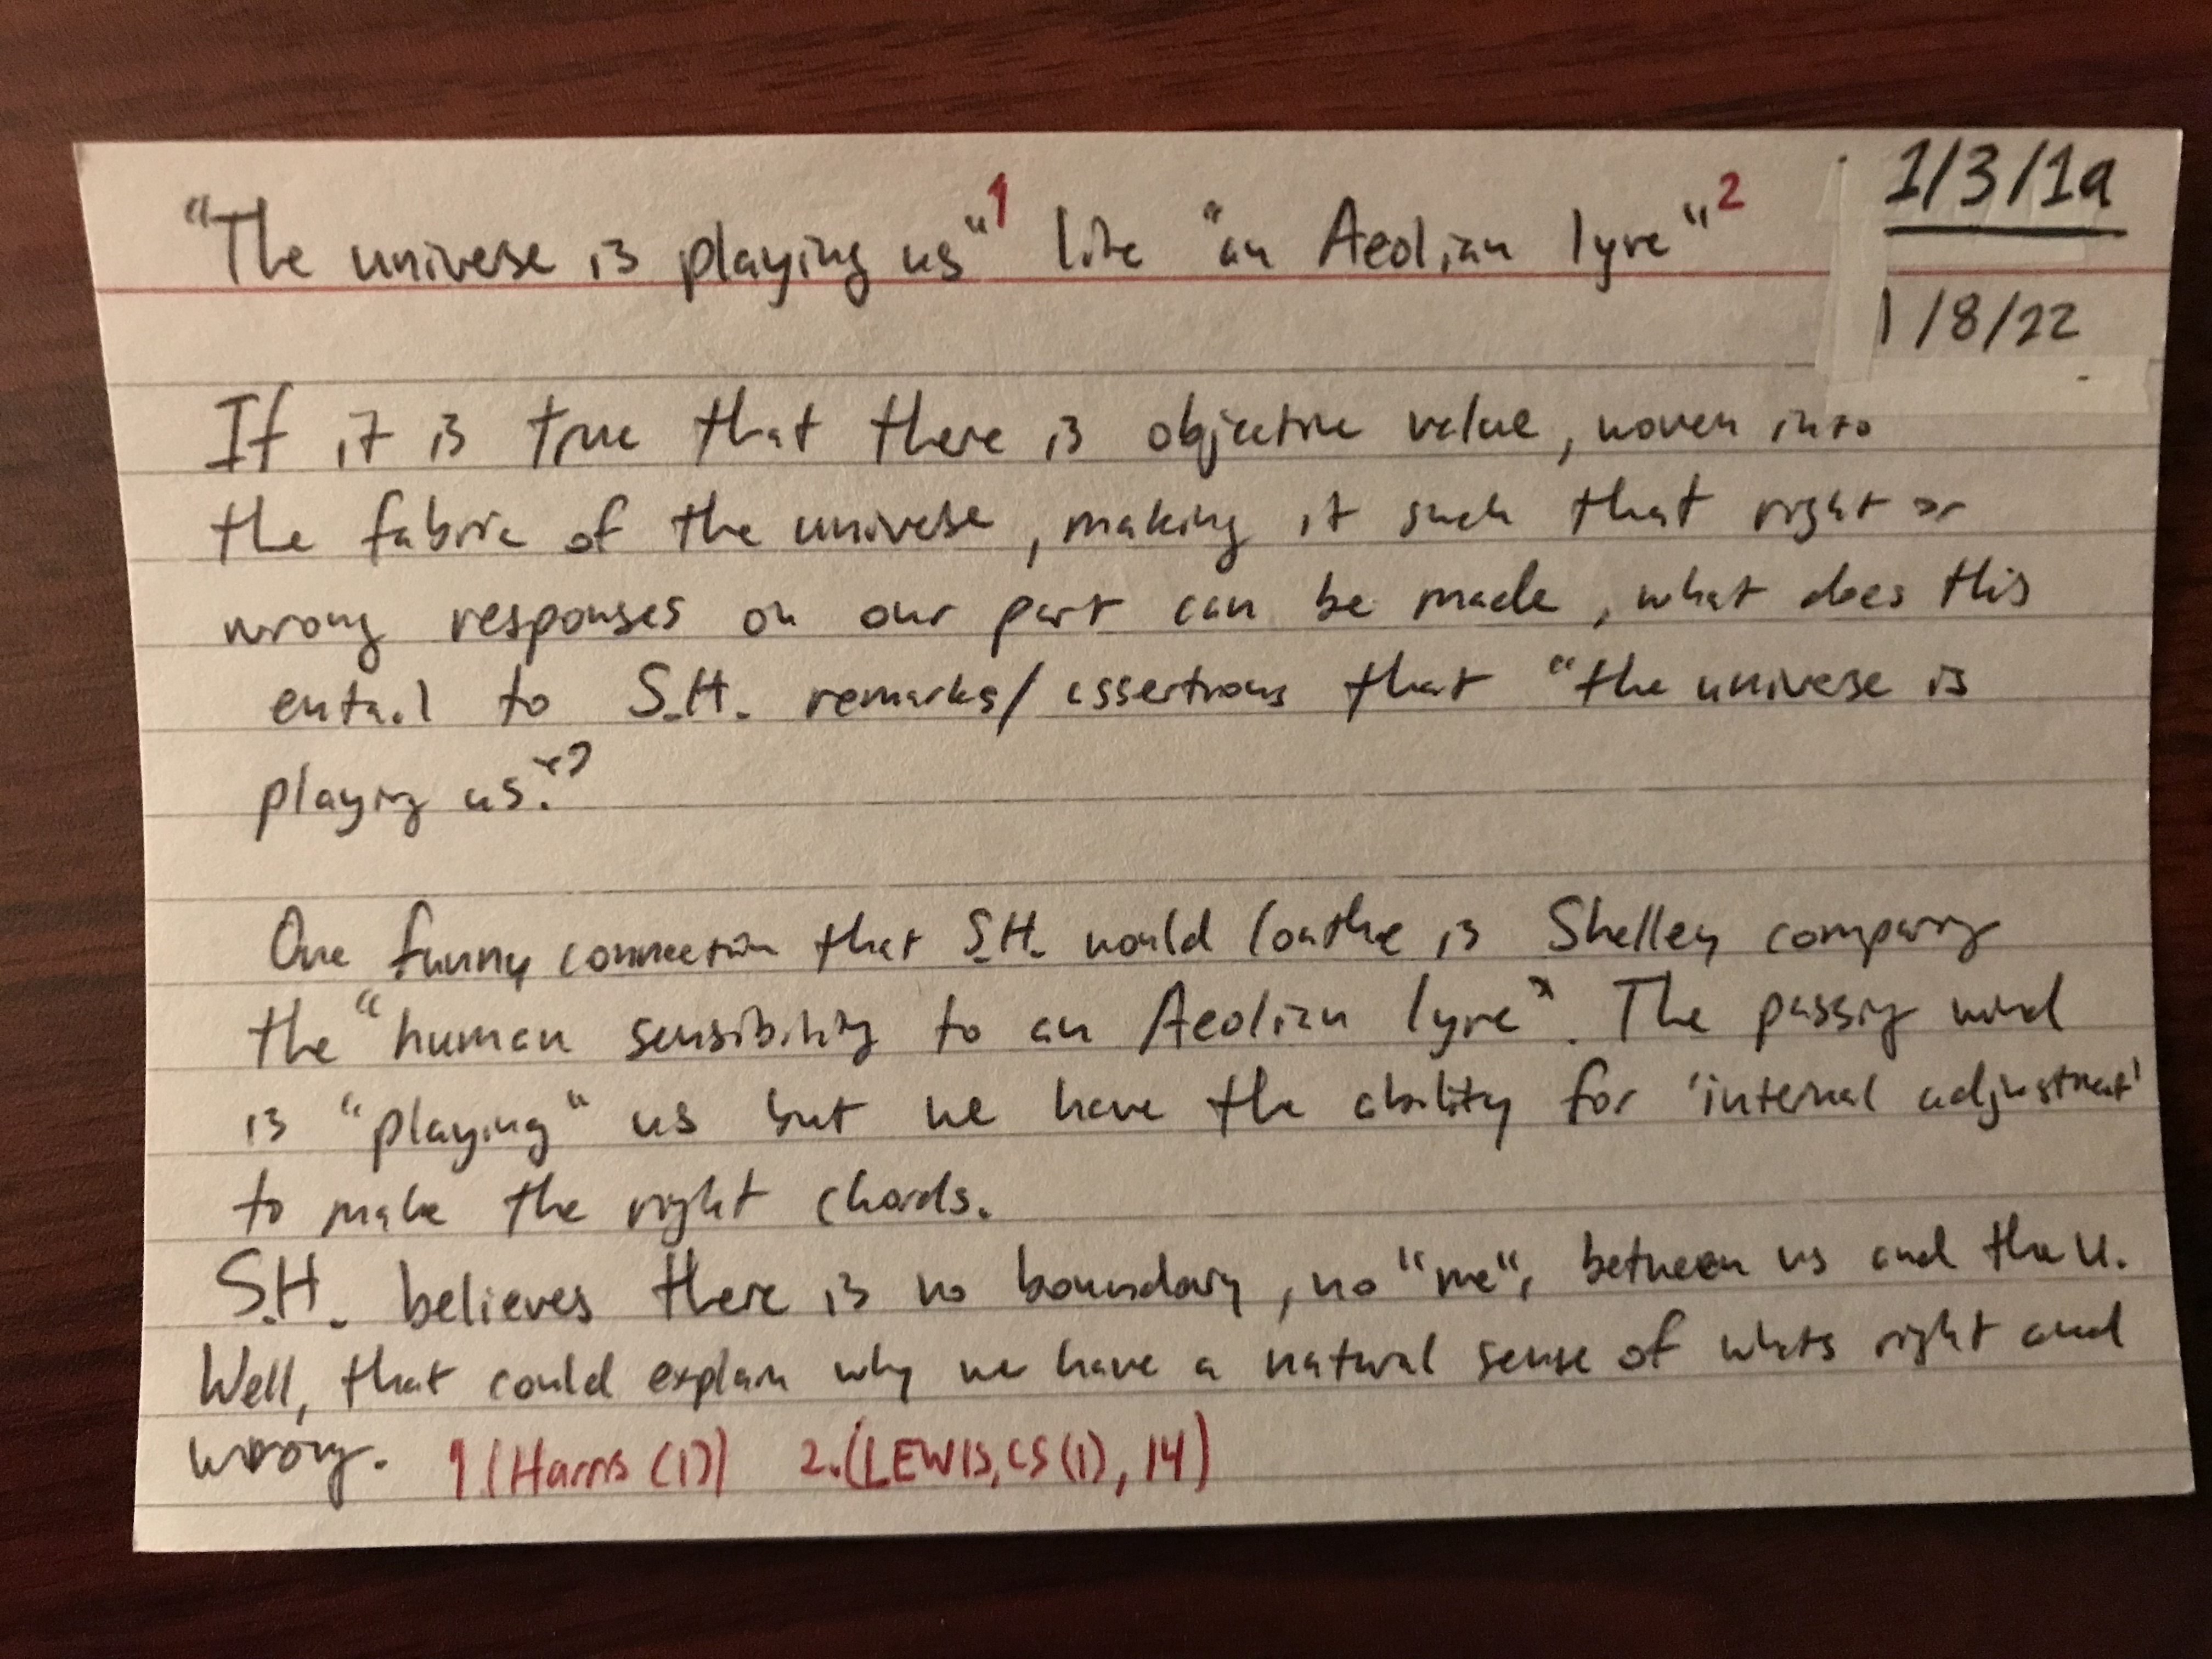 "The universe is playing us"1 like "an Aeolian lyre"2
1/3/1a
1/8/22
If it is true that there is objective value, woven into
the fabric of the universe, making it such that right or
wrong responses on our part can be made, what does this
entail to S.H. remarks/assertions that "the universe is
playing us"?
One funny connection that S.H. would loathe is Shelley comparing
the "human sensibility to an Aeolian lyre". The passing wind
is "playing" us but we have the ability for 'internal adjustment'
to make the right chords.
S.H. believes there is no boundary, no "me", between us and the U.
Well, that could explain why we have a natural sense of whats right and
wrong. 1 (Harris (1)) 2. (LEWIS, CS (1), 14)